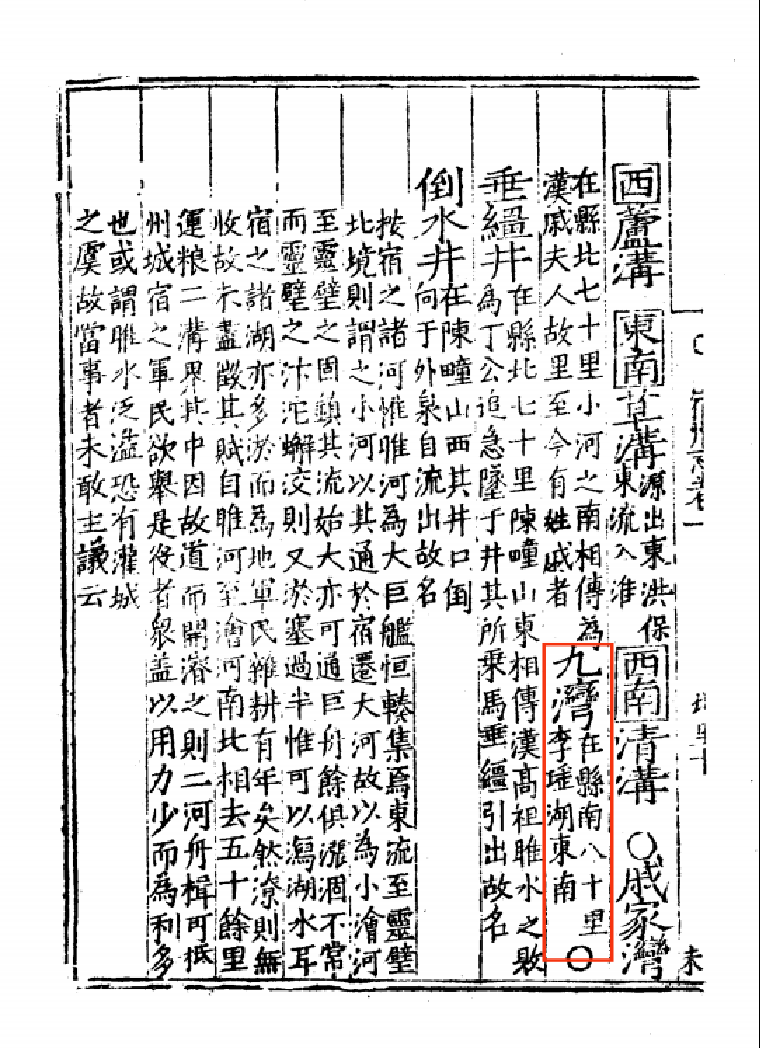 西蘆溝 東南草溝 源出東洪保
東流入淮
西南清溝 ○戚家灣
在縣北七十里小河之南相傳為
漢戚夫人故里至今有姓戚者
九灣 在縣南八十里
李瑶湖東南 ○
垂繮井 在縣北七十里陳疃山東相傳漢高祖睢水之敗
為丁公追急墜于井其所乘馬垂繮引出故名
倒水井 在陳疃山西其井口倒
向于外泉自流出故名
按宿之諸河惟睢河為大巨艦恒輳集焉東流至靈璧
北境則謂之小河以其通於宿遷大河故以為小澮河
至靈璧之固鎮其流始大亦可通巨舟餘俱漲涸不常
而靈璧之汴沱蠏洨則又淤塞過半惟可以瀉湖水耳
宿之諸湖亦多淤而為地軍民雜耕有年矣然潦則無
收故未盡徵其賦自睢河至澮河南北相去五十餘里
運粮二溝界其中因故道而開濬之則二河舟楫可抵
州城宿之軍民欲舉是役者衆蓋以用力少而為利多
也或謂睢水泛溢恐有灌城
之虞故當事者未敢主議云